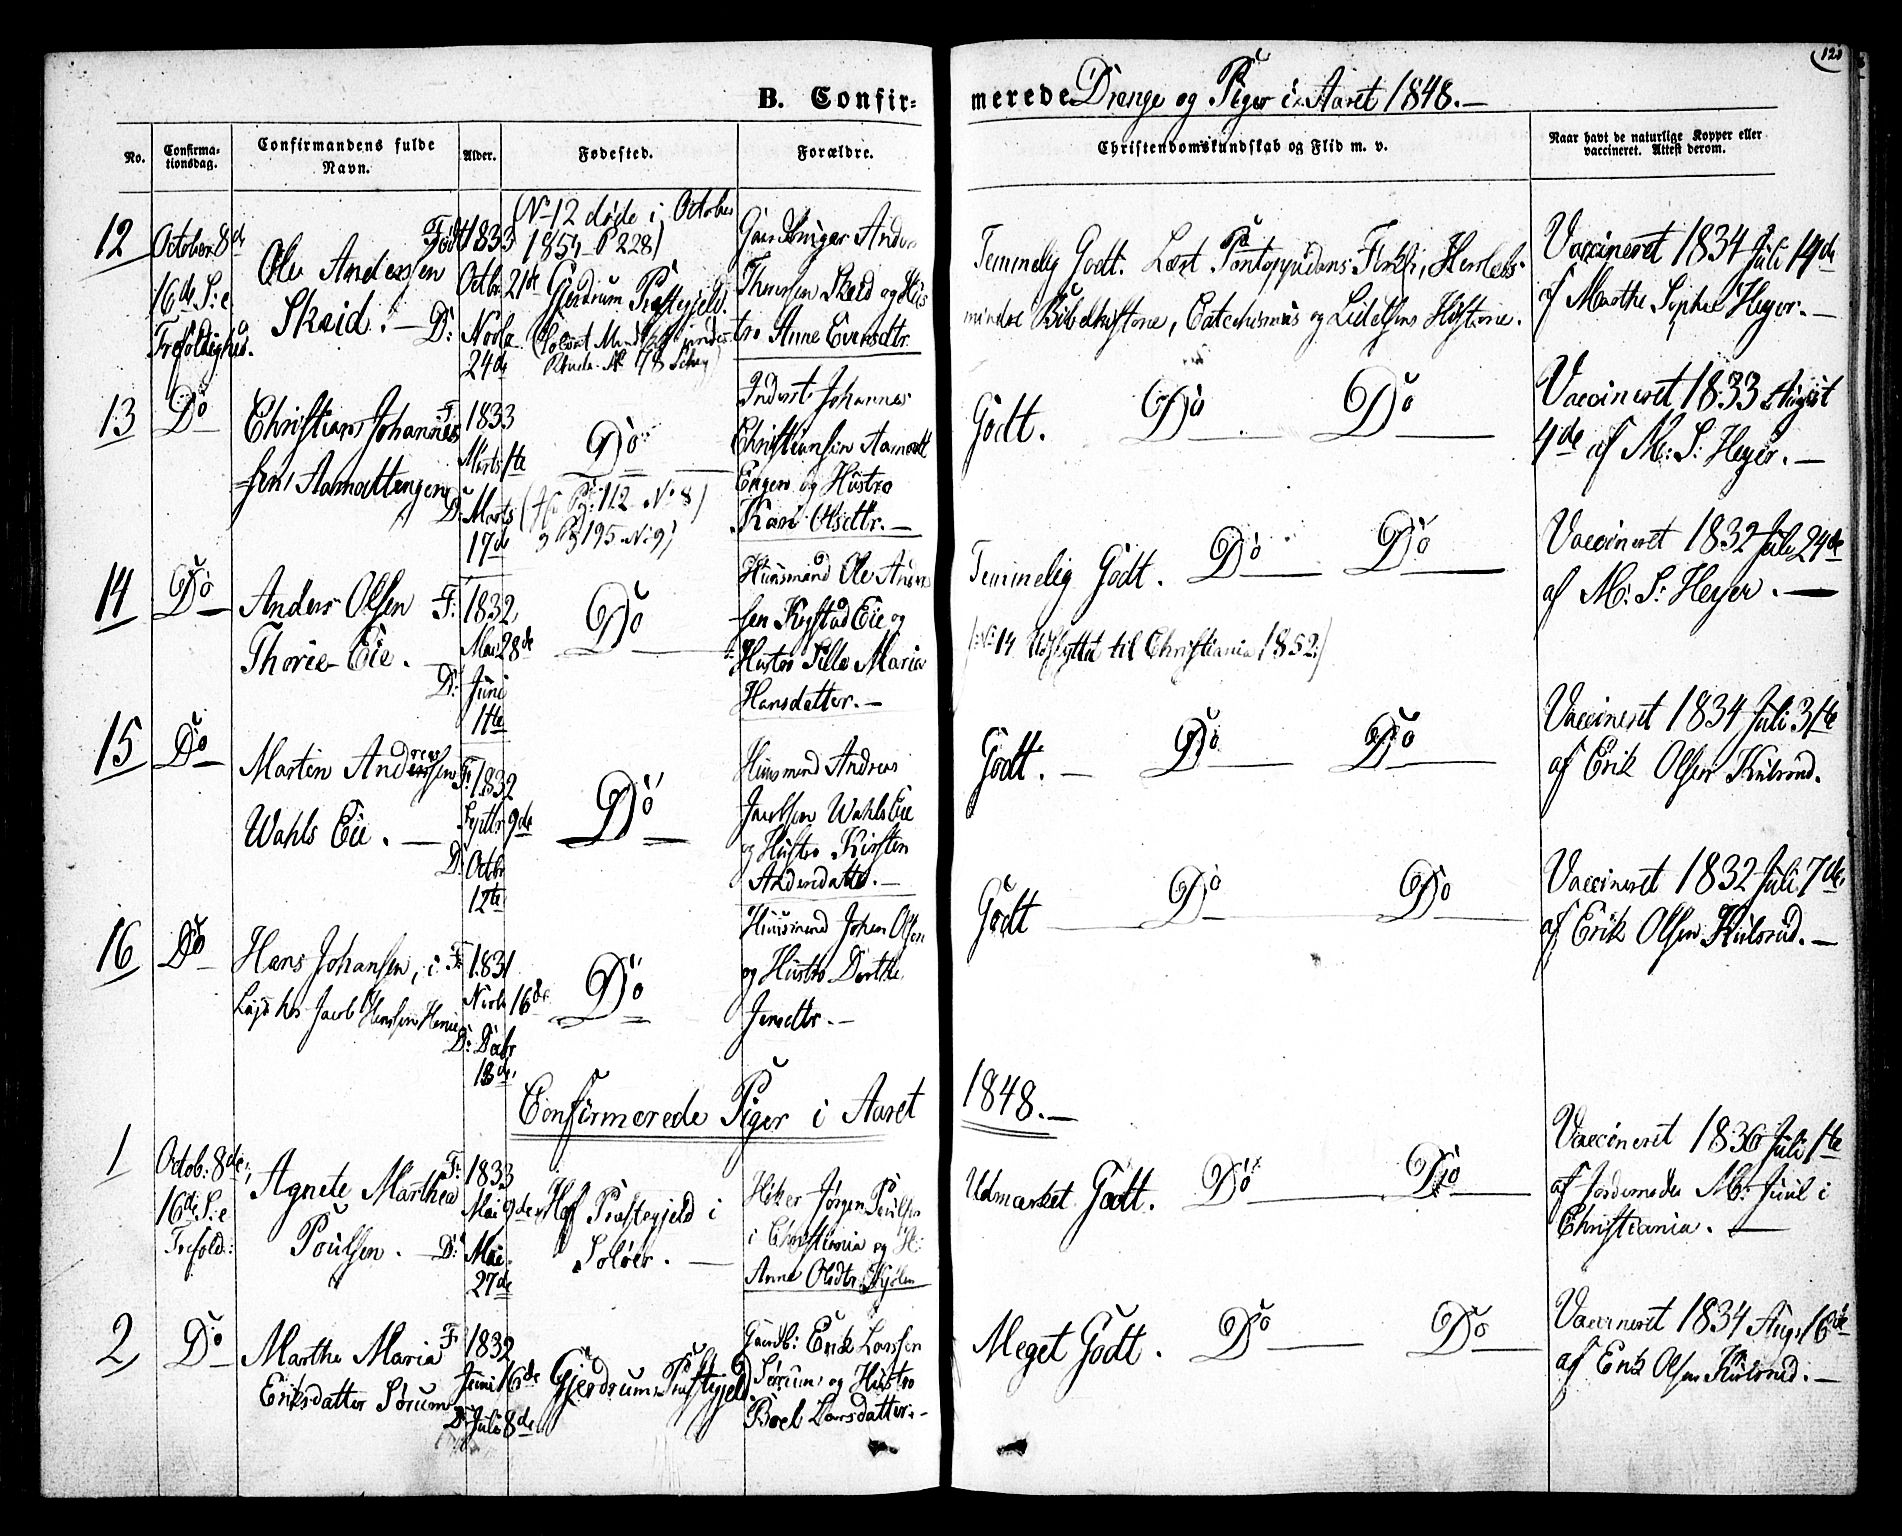 120
B. Confir=
merede Drenge og Piger i Aaret 1848.—
No.
Confirma-
tionsdag.
Confirmandens fulde
Navn.
Alder.
Fødested.
Forældre.
Christendomskundskab og Flid m. v.
Naar havt de naturlige Kopper eller
vaccineret. Attest derom.
12
October 8de
16de S: e
Trefoldighed.
Ole Andersen
Skeid. —
Født 1833
Octbr 21de
D: Novbr
24de
(No 12 døde i October
1854, P 228)
Gjerdrum Præstegjeld.
Gaardbruger Anders
Skeid og Hus
tro Anne Evensdtr.
Temmelig Godt. Læst Pontoppidans Forkl:, Herslebs
mindre Bibelhistorie, Catechismus og Lidelsens Historie.
Vaccineret 1834 Juli 19de
af Marthe Sophie Heyer. —
13
Do
Christian Johannes
sen Aamodtengen
F. 1833
Marts 1te
D: Marts
17de
Do
Pg: 112 No 8)
195 No 9)
Inderst Johannes
Christiansen Aamodt
Engen og Hustro
Kari Olsdtr. —
Godt. Do Do
Vaccineret 1833 August
4de af M: S: Heyer. —
14
Do
Anders Olsen
Thorie Eie. —
F: 1832
Mai 28de
D: Juni
11te
Do
Huusmand Ole Ander
sen Kogstad Eie og
Hustro Sille Maria
Hansdatter. —
Temmelig Godt. Do Do
(No 14 Udflyttet til Christiania 1852.)
Vaccineret 1832 Juli 24de
af M: S: Heyer. —
15
Do
Martin Andreassen
Wahls Eie. —
F: 1832
Septbr 9de
D: Octbr
12te
Do
Huusmand Andreas
Jacobsen Wahls Eie
og Hustro Kirsten
Andersdatter. —
Godt. — Do Do
Vaccineret 1834 Juli 31te
af Erik Olsen Kulsrud.
16
Do
Hans Johansen, i
Leje hos Jacob Hansen
F: 1831
Novbr 16de
D: Decbr
18de
Do
Huusmand Johan Olsen
og Hustro Dorthe
Jensdtr. —
Godt Do Do
Vaccineret 1832 Juli 7de
af Erik Olsen Kulsrud. —
Confirmerede Piger i Aaret
1848. —
1
Octob: 8de
16de S: e
Trefold:
Agnete Marthea
Poulsen. —
F: 1833
Mai 9de
D: Mai
27de
Hof Præstegjeld i
Soløer. —
Høker Jørgen Poulsen
i Christiania og H:
Anne Olsdtr.
Udmærket Godt. Do Do
Vaccineret 1836 Juli 1te
af Jordemoder M: Juul i
Christiania. —
2
Do
Marthe Maria
Eriksdatter Sørum
F 1832
Juni 16de
D: Juli 8de
Gjerdrums Præstegjeld
Gaardb: Erik Larssen
Sørum og Hustro
Boel Larsdatter. —
Meget Godt. Do Do
Vaccineret 1834 Aug: 16de
af Erik Olsen Kulsrud. —